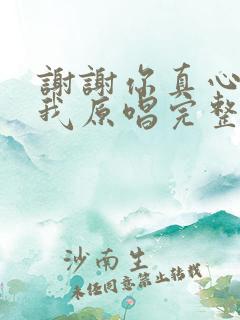 謝謝你真心
我原唱完整
沙南生
未经同意禁止转载